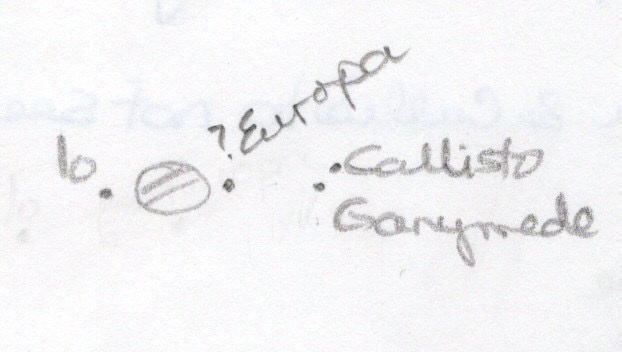 Io
? Europa
Callisto
Ganymede